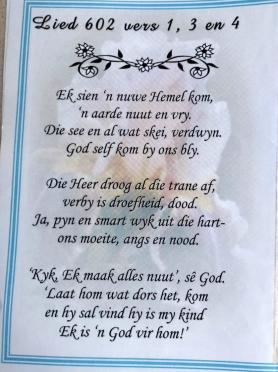 Lied 602 vers 1, 3 en 4
Ek sien 'n nuwe Hemel kom,
'n aarde nuut en vry.
Die see en al wat skei, verdwyn.
God self kom by ons bly.
Die Heer droog al die trane af,
verby is droefheid, dood.
Ja, pyn en smart wyk uit die hart-
ons moeite, angs en nood.
'Kyk. Ek maak alles nuut', sê God.
'Laat hom wat dors het, kom
en hy sal vind hy is my kind
Ek is 'n God vir hom!'